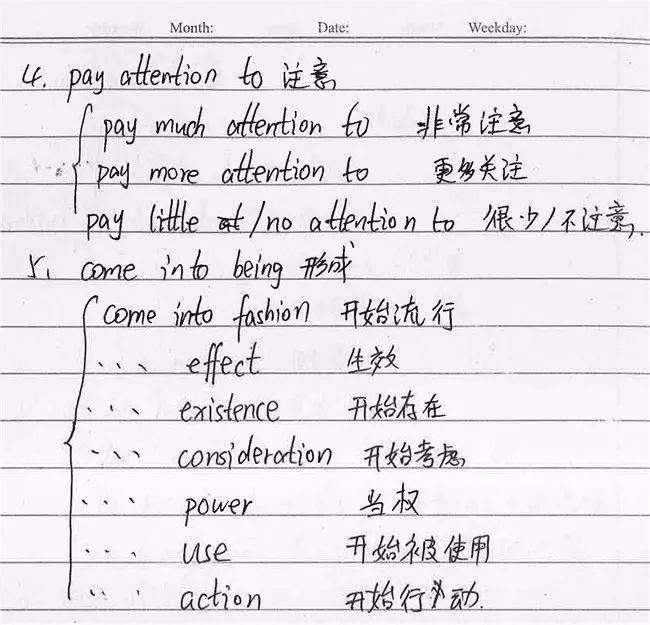 Month: Date: Weekday:
4. pay attention to 注意
pay much attention to 非常注意
pay more attention to 更多关注
pay little at/no attention to 很少/不注意.
5. come into being 形成
come into fashion 开始流行
... effect 生效
... existence 开始存在
... consideration 开始考虑
... power 当权
... use 开始被使用
... action 开始行动.